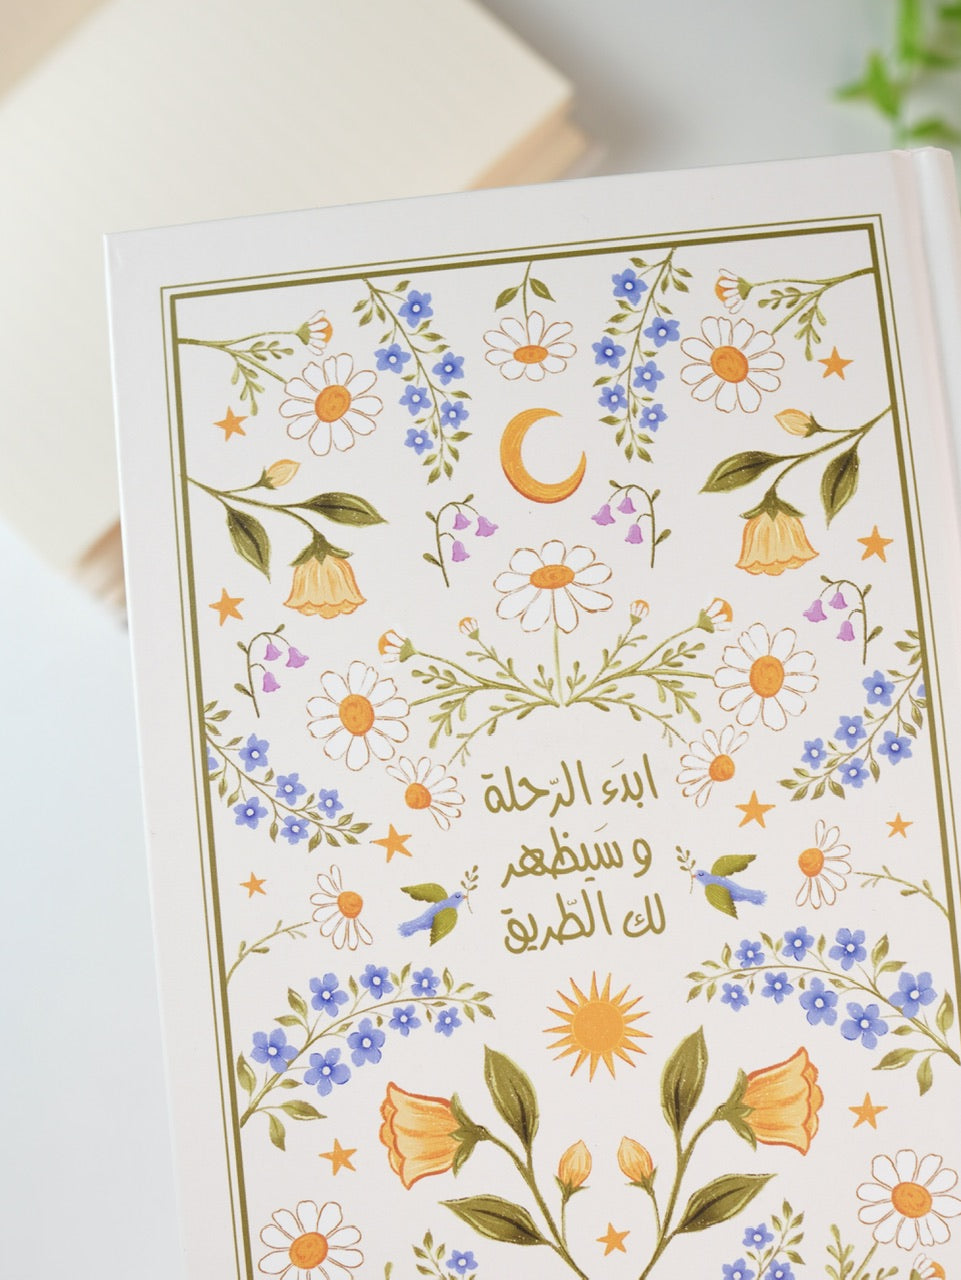 ابدَء الرّحلة
و سَيظهر
لك الطّريق